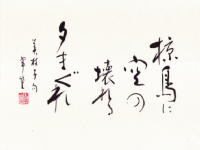 椋鳥に
空の
壊れ
夕まぐれ
美枝子句